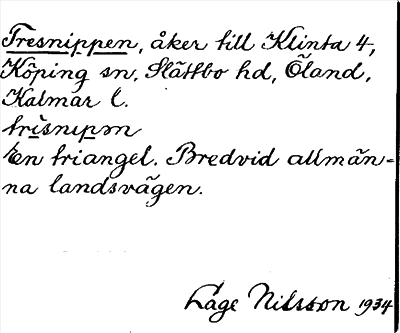 Tresnippen, åker till Klinta 4,
Köping sn, Slättbo hd, Öland,
Kalmar l.
trisnipən
En triangel. Bredvid allmän-
na landsvägen.
Låge Nilsson 1934